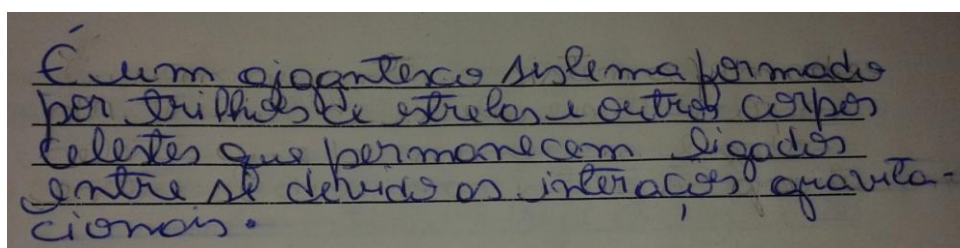 É um gigantesco sistema formado
por trilhões de estrelas e outros corpos
celestes que permanecem ligados
entre si devido as interações gravita-
cionais.